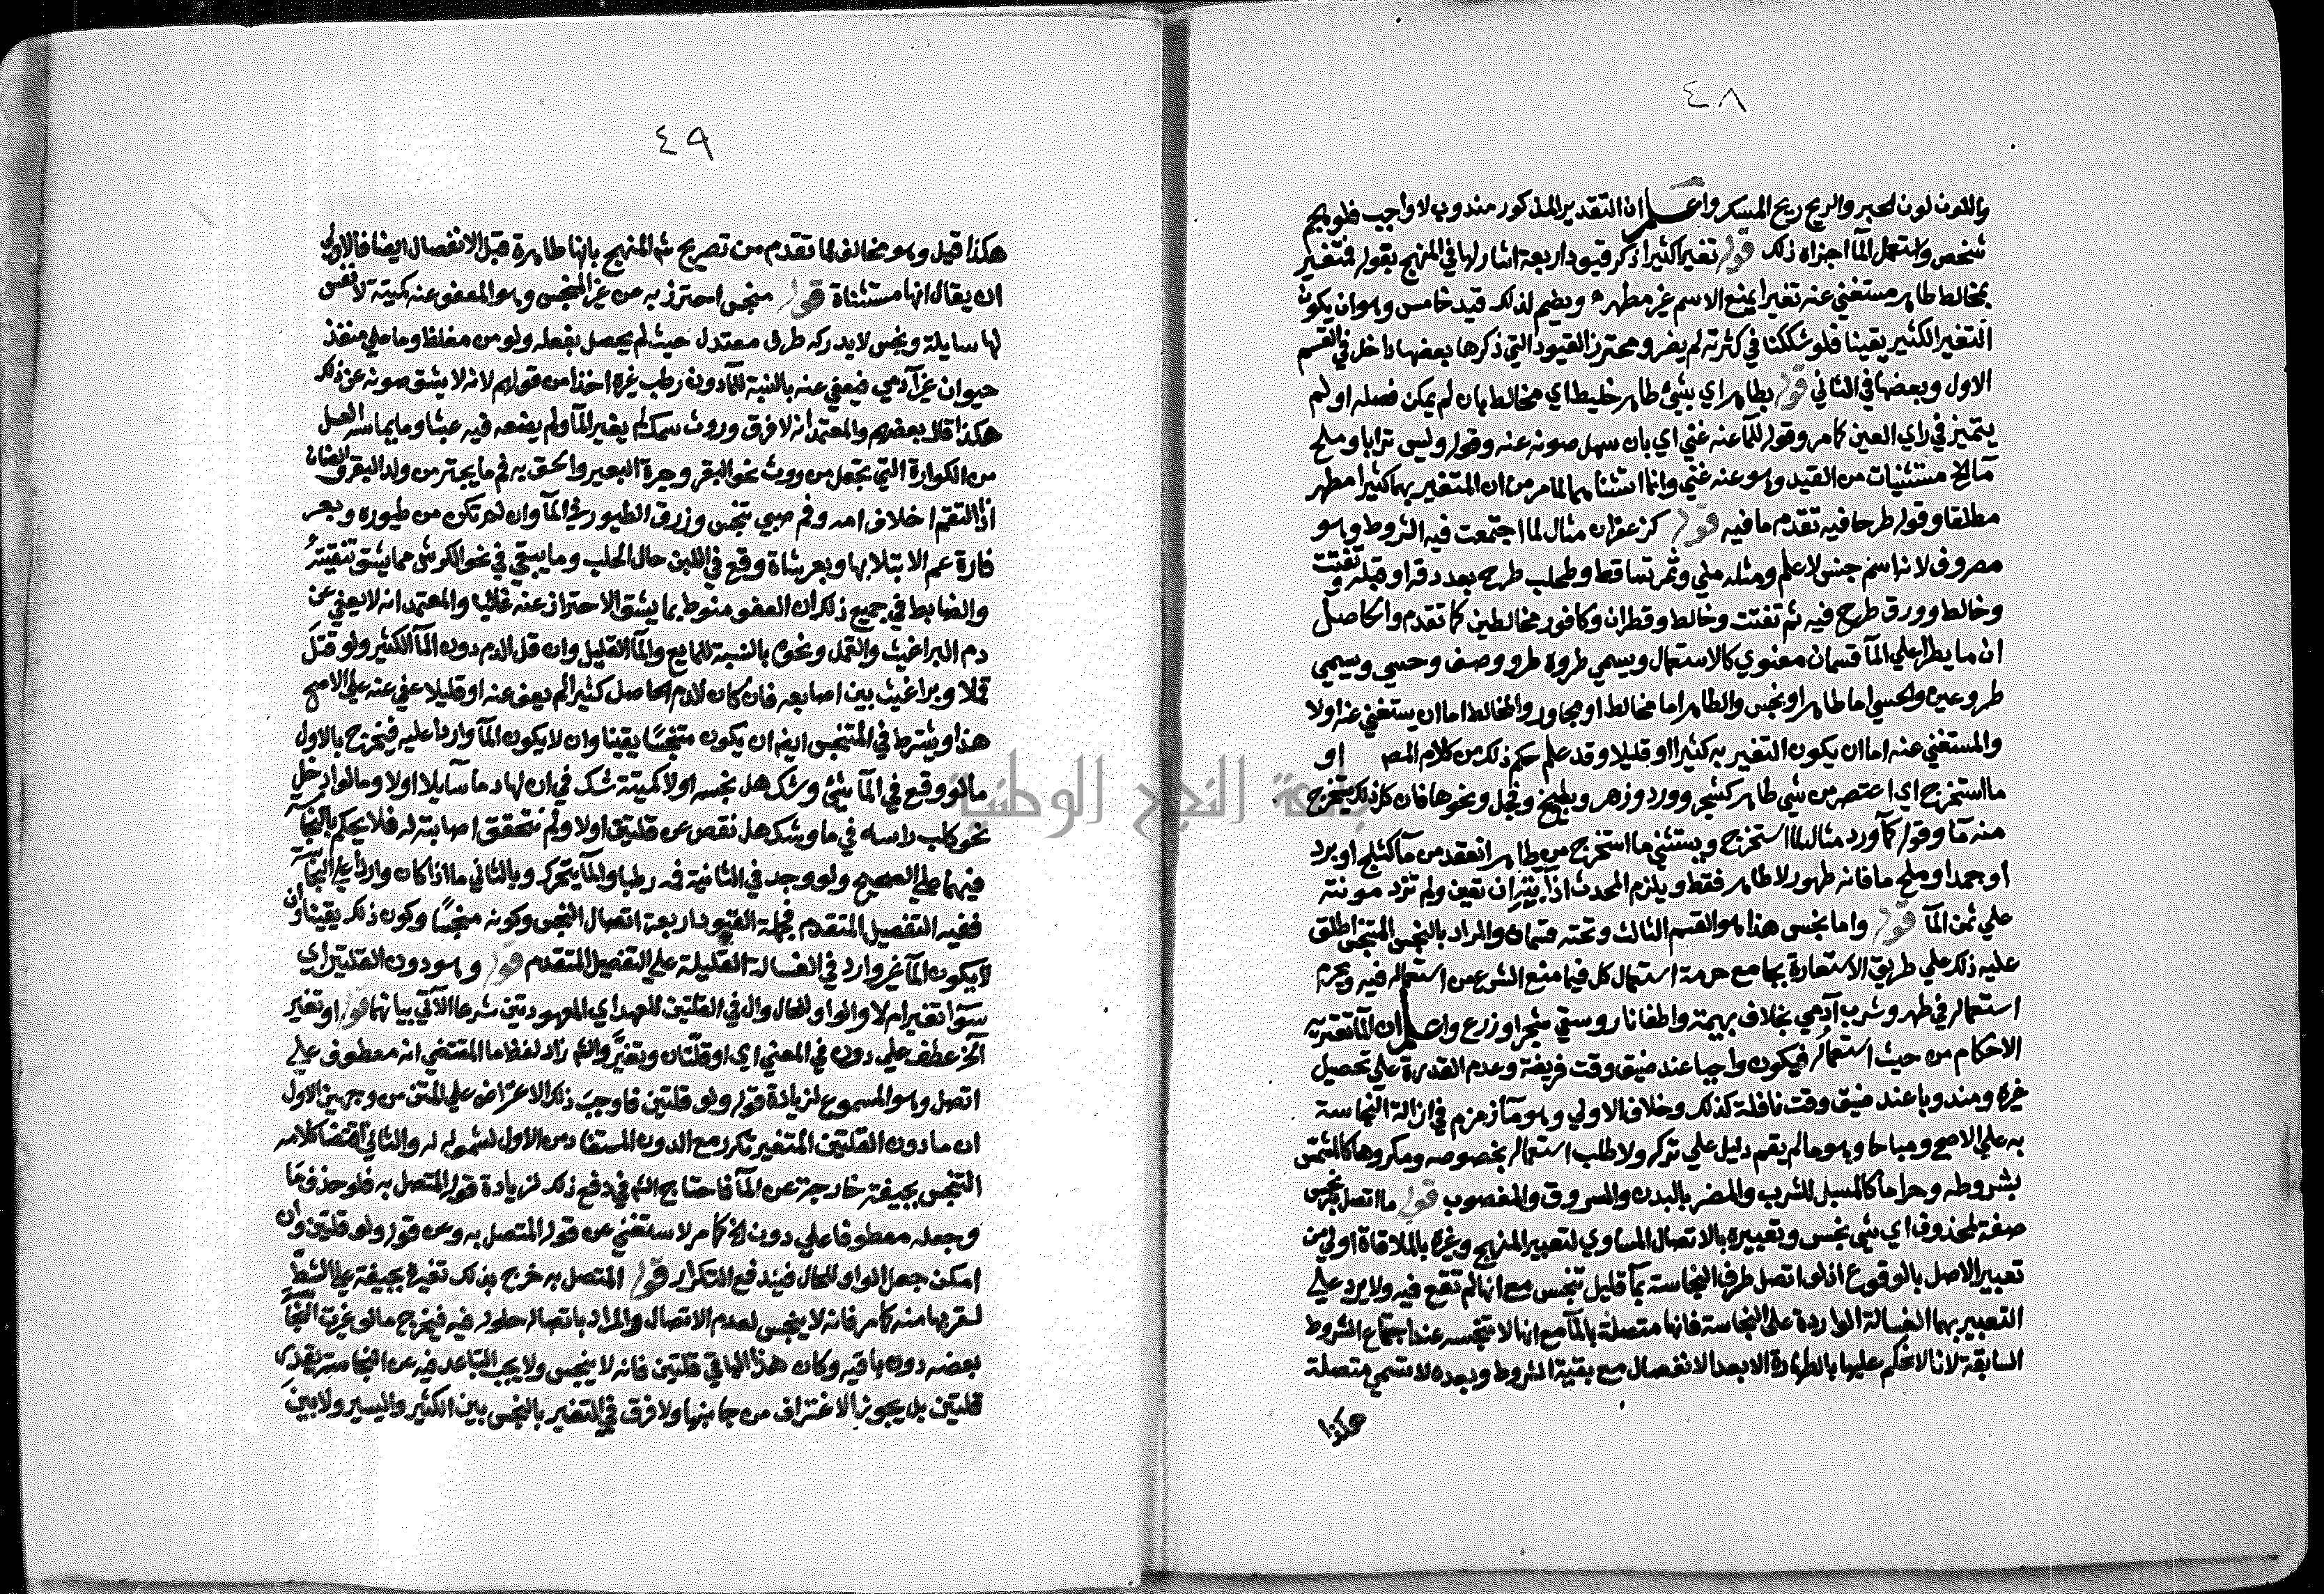 ٤٨
واللون لون الحبر والريح ريح المسك واعلم ان التقدير المذكور مندوب لا واجب فلو هجم
شخص واستعمل الما اجزاه ذلك قوله تغيرا كثيرا ذكر قيودا اربعة اشار لها في المنهج بقوله فمتغير
بمخالط طاهر مستغني عنه تغيرا يمنع الاسم غير مطهر ويضم لذلك قيد خامس وهو ان يكون
التغير الكثير يقينا فلو شككنا في كثرته لم يضر ومحترز القيود التي ذكرها بعضها داخل في القسم
الاول وبعضها في الثاني قوله بطاهر اي بشئ طاهر خليط اي مخالط بان لم يمكن فصله او لم
يتميز في راي العين كما مر وقوله للما عنه غني اي بان سهل صونه عنه وقوله وليس ترابا وملح
ما الخ مستثنيات من القيد وهو عنه غني وانما استثناهما لما مر من ان المتغير بهما كثيرا مطهر
مطلقا وقوله طرحا فيه تقدم ما فيه قوله كزعفران مثال لما اجتمعت فيه الشروط وهو
مصروف لانه اسم جنس لا علم ومثله مني وثمر تساقط وطحلب طرح بعد دقه او قبله وتفتت
وخالط وورق طرح فيه ثم تفتت وخالط وقطران وكافور مخالطين كما تقدم والحاصل
ان ما يطرا علي الما قسمان معنوي كالاستعمال ويسمي طروه طرو وصف وحسي ويسمي
طرو عين والحسي اما طاهر او نجس والطاهر اما مخالط او مجاور والمخالط اما ان يستغني عنه اولا
والمستغني عنه اما ان يكون التغير به كثيرا او قليلا وقد علم حكم ذلك من كلام المص او
ما استخرج اي اعتصر من شي طاهر كشجر وورد وزهر وبطيخ وفجل ونحوها فان كل ذلك يستخرج
منه ما وقوله كما ورد مثال لما استخرج ويستثني ما استخرج من طاهر انعقد من ما كثلج او برد
او جمد او ملح ما فانه طهور لا طاهر فقط ويلزم المحدث اذابته ان تعين ولم تزد مونته
علي ثمن الما قوله واما نجس هذا هو القسم الثالث وتحته قسمان والمراد بالنجس المتنجس اطلق
عليه ذلك علي طريق الاستعارة بجامع حرمة استعمال كل فيما منع الشرع من استعماله فيه ويحرم
استعماله في طهر وشرب آدمي بخلاف بهيمة واطفا نار وسقي شجر او زرع واعلم ان الما تعتريه
الاحكام من حيث استعماله فيكون واجبا عند ضيق وقت فريضة وعدم القدرة علي تحصيل
غيره ومندوبا عند ضيق وقت نافلة كذلك وخلاف الاولي وهو ما زمزم في ازالة النجاسة
به علي الاصح ومباحا وهو ما لم يقم دليل علي تركه ولا طلب استعماله بخصوصه ومكروها كالمشمس
بشروطه وحراما كالمسبل للشرب والمضر بالبدن والمسروق والمغصوب قوله ما اتصل به نجس
صفة لمحذوف اي شي نجس وتعبيره بالاتصال المساوي لتعبير المنهج وغيره بالملاقاة اولي من
تعبير الاصل بالوقوع اذ لو اتصل طرف النجاسة بما قليل تنجس مع انها لم تقع فيه ولا يرد علي
التعبير بهما الغسالة الواردة علي النجاسة فانها متصلة بالما مع انها لا تنجسه عند اجتماع الشروط
السابقة لانا لا نحكم عليها بالطهارة الا بعد الانفصال مع بقية الشروط وبعده لا تسمي متصلة
هكذا
٤٩
هكذا قيل وهو مخالف لما تقدم من تصريح شم المنهج بانها طاهرة قبل الانفصال ايضا فالاولي
ان يقال انها مستثناة قوله منجس احترز به عن غير المنجس وهو المعفو عنه كميتة لا نفس
لها سايلة ونجس لا يدركه طرف معتدل حيث لم يحصل بفعله ولو من مغلظ وما علي منفذ
حيوان غير آدمي فيعفي عنه بالنسبة للما دون رطب غيره اخذا من قولهم لانه لا يشق صونه عن ذلك
هكذا قال بعضهم والمعتمد انه لا فرق وروث سمك لم يغير الما ولم يضعه فيه عبثا وما يماسه العسل
من الكوارة التي تجعل من روث نحو البقر وجرة البعير والحق به فم ما يجتر من ولد البقر والضان
اذا التقم اخلاف امه وفم صبي تنجس وزرق الطيور في الما وان لم تكن من طيوره وبعر
فارة عم الابتلا بها وبعر شاة وقع في اللبن حال الحلب وما يبقي في نحو الكرش مما يشق تنقيته
والضابط في جميع ذلك ان العفو منوط بما يشق الاحتراز عنه غالبا والمعتمد انه لا يعفي عن
دم البراغيث والقمل ونحوه بالنسبة للمايع والما القليل وان قل الدم دون الما الكثير ولو قتل
قملا وبراغيث بين اصابعه فان كان الدم الحاصل كثيرا لم يعف عنه او قليلا عفي عنه علي الاصح
هذا ويشترط في المتنجس ايضا ان يكون متنجسا يقينا وان لا يكون الما واردا عليه فيخرج بالاول
ما لو وقع في الما شئ وشك هل نجسه اولا كميتة شك في ان لها دما سايلا اولا وما لو ادخل
نحو كلب راسه في ما وشك هل نقص عن قلتين اولا ولم نتحقق اصابته له فلا يحكم بالنجاسة
فيهما علي الصحيح ولو وجد في الثانية فمه رطبا والما يتحرك وبالثاني ما اذا كان واردا علي النجاسة
ففيه التفصيل المتقدم فجملة القيود اربعة اتصال النجس وكونه منجسا وكون ذلك يقينا وان
لا يكون الما غير وارد في الغسالة القليلة علي التفصيل المتقدم قوله وهو دون القلتين اي
سوا تغير ام لا والواو للحال وال في القلتين للعهد اي المعهودتين شرعا الآتي بيانهما قوله او تغير
الخ عطف علي دون في المعني اي او قلتان وتغير والشم زاد لفظ ما المقتضي انه معطوف علي
اتصل وهو المسموع لزيادة قوله ولو قلتين فاوجب ذلك الاعتراض علي المتن من وجهين الاول
ان ما دون القلتين المتغير تكرر مع الدون المستفاد من الاول لشموله له والثاني اقتضا كلامه
التنجس بجيفة خارجة عن الما فاحتاج الشم في دفع ذلك لزيادة قوله المتصل به فلو حذف ما
وجعله معطوفا علي دون الخ كما مر لاستغني عن قوله المتصل به وعن قوله ولو قلتين وان
امكن جعل الواو للحال فيندفع التكرار قوله المتصل به خرج بذلك تغيره بجيفة علي الشط
لقربها منه كما مر فانه لا ينجس لعدم الاتصال والمراد باتصاله حلوله فيه فيخرج ما لو غيرت النجاسة
بعضه دون باقيه وكان هذا الباقي قلتين فانه لا ينجس ولا يجب التباعد فيه عن النجاسة بقدر
قلتين بل يجوز الاغتراف من جانبها ولا فرق في التغير بالنجس بين الكثير واليسير ولا بين